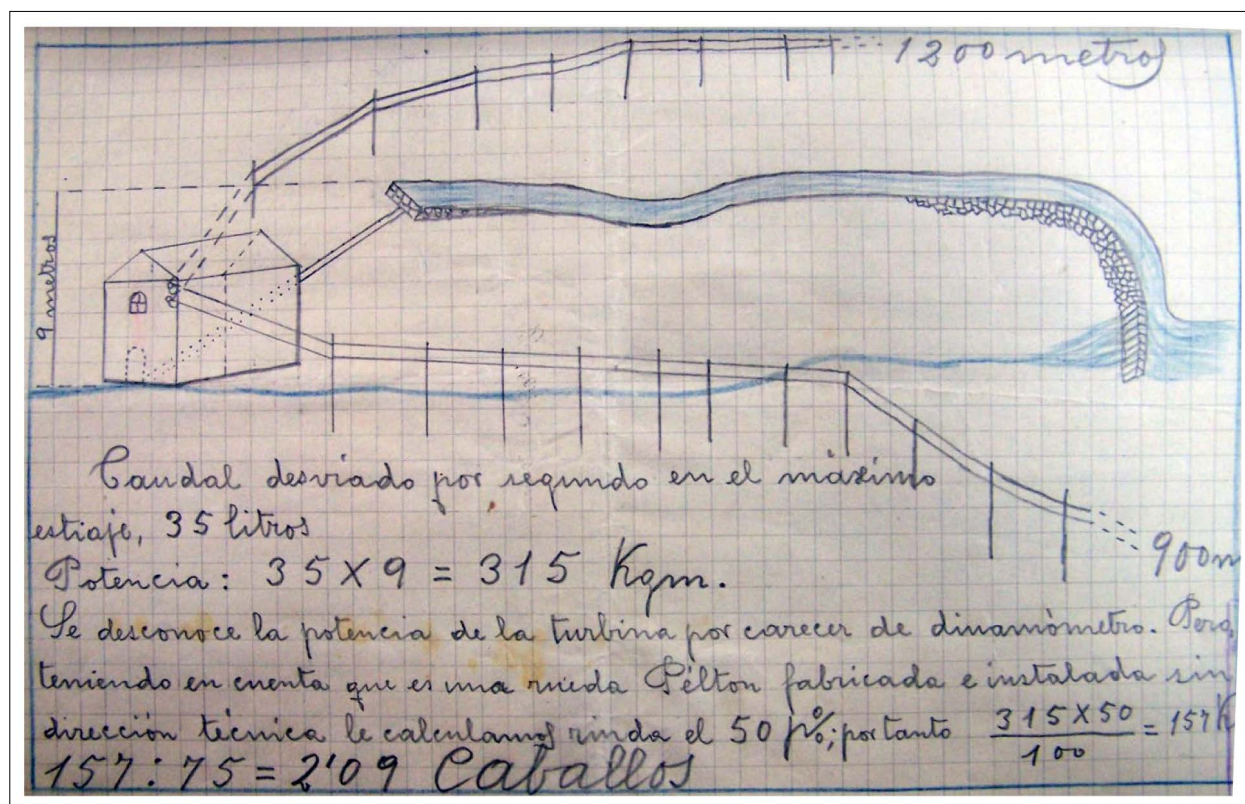 1200 metros
9 metros
900m
Caudal desviado por segundo en el máximo
estiaje, 35 litros
Potencia: 35 X 9 = 315 Kgm.
Se desconoce la potencia de la turbina por carecer de dinamómetro. Pero,
teniendo en cuenta que es una rueda Pélton fabricada e instalada sin
dirección técnica le calculamos rinda el 50 p%; por tanto 315 X 50 / 100 = 157 K
157 : 75 = 2'09 Caballos